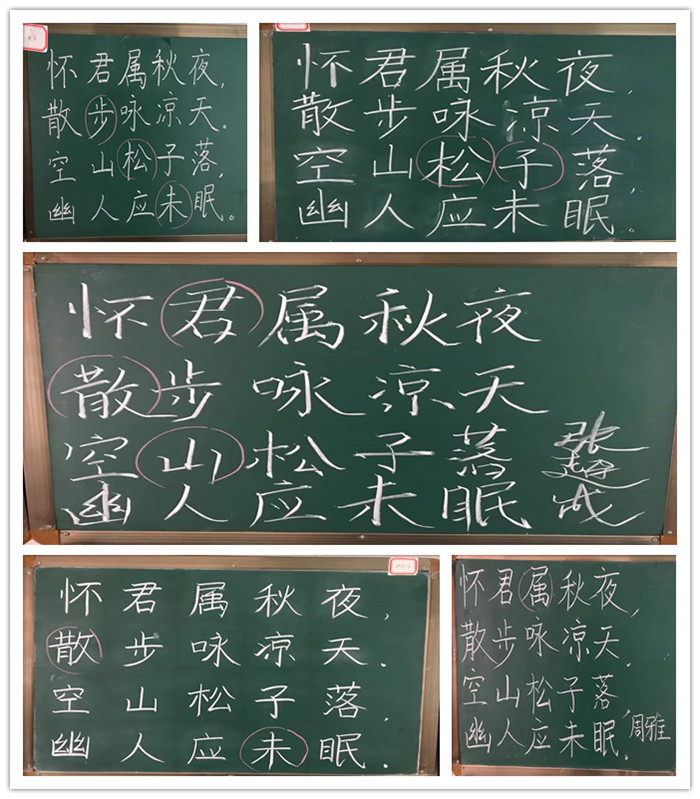 怀君属秋夜,
散步咏凉天。
空山松子落,
幽人应未眠。
怀君属秋夜,
散步咏凉天.
空山松子落,
幽人应未眠.
怀君属秋夜
散步咏凉天
空山松子落
幽人应未眠
怀君属秋夜,
散步咏凉天.
空山松子落,
幽人应未眠.
怀君属秋夜,
散步咏凉天.
空山松子落,
幽人应未眠.
周雅